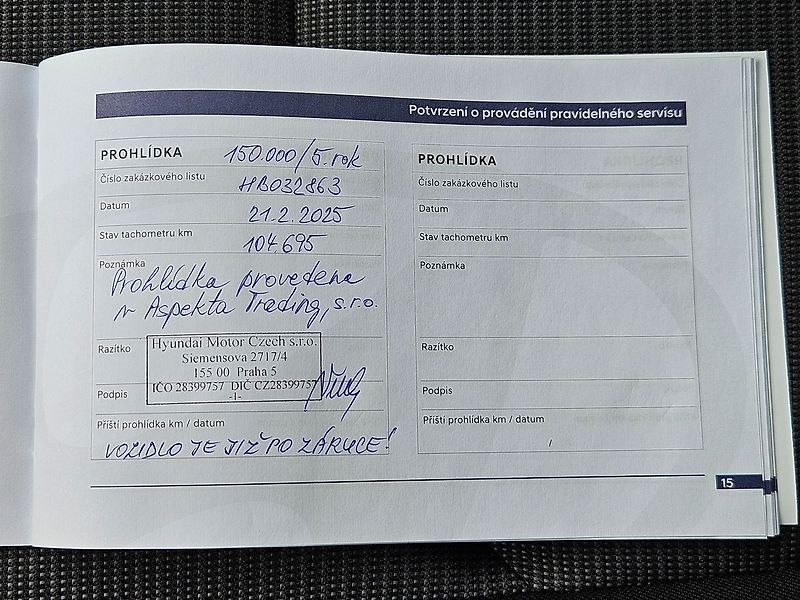 Potvrzení o provádění pravidelného servisu
PROHLÍDKA 150.000/5. rok
Číslo zakázkového listu HB032863
Datum 21.2.2025
Stav tachometru km 104.695
Poznámka
Prohlídka provedena
v Aspekta Trading, s.r.o.
Razítko
Hyundai Motor Czech s.r.o.
Siemensova 2717/4
155 00 Praha 5
IČO 28399757 DIČ CZ28399757
-1-
Podpis
Příští prohlídka km / datum
VOZIDLO JE JIŽ PO ZÁRUCE!
PROHLÍDKA
Číslo zakázkového listu
Datum
Stav tachometru km
Poznámka
Razítko
Podpis
Příští prohlídka km / datum
15